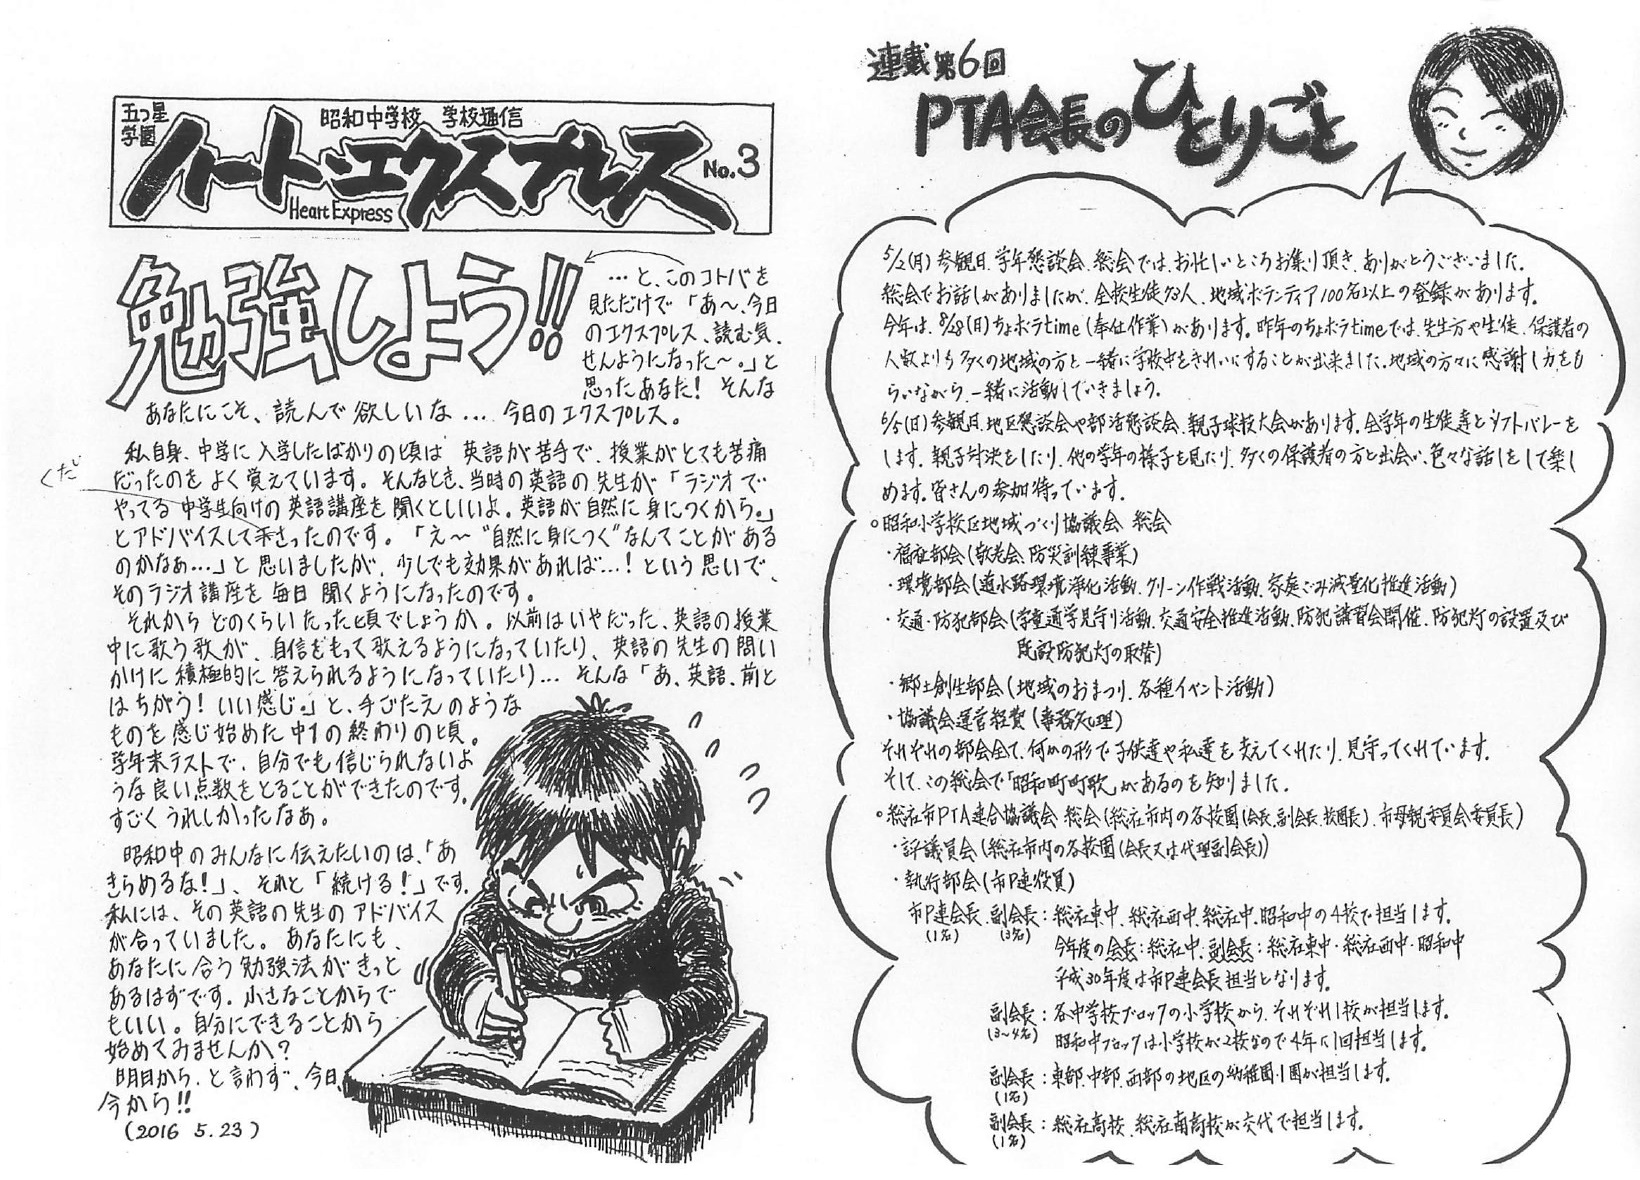 五つ星
学園
昭和中学校 学校通信
ハート・エクスプレス
No.3
Heart Express
勉強しよう!!
…と、このコトバを
見ただけで「あ～、今日
のエクスプレス、読む気
せんようになった～。」と
思ったあなた! そんな
あなたにこそ、読んで欲しいな… 今日のエクスプレス。
私自身、中学に入学したばかりの頃は 英語が苦手で、授業がとても苦痛
だったのを よく覚えています。そんなとき、当時の英語の先生が「ラジオで
やってる 中学生向けの英語講座を聞くといいよ。英語が自然に身につくから。」
とアドバイスして下さったのです。「え～“自然に身につく”なんてことがある
のかなぁ…」と思いましたが、少しでも効果があれば…!という思いで、
そのラジオ講座を毎日 聞くようになったのです。
それから どのくらいたった頃でしょうか。以前はいやだった、英語の授業
中に歌う歌が、自信をもって歌えるようになっていたり、英語の先生の問い
かけに積極的に答えられるようになっていたり… そんな「あ、英語、前と
はちがう! いい感じ。」と、手ごたえのような
ものを感じ始めた 中1の終わりの頃。
学年末テストで、自分でも信じられないよ
うな良い点数をとることができたのです。
すごくうれしかったなぁ。
昭和中のみんなに伝えたいのは、「あ
きらめるな!」、それと「続ける!」です。
私には、その英語の先生のアドバイス
が合っていました。あなたにも、
あなたに合う勉強法がきっと
あるはずです。小さなことからで
もいい。自分にできることから
始めてみませんか?
明日から、と言わず、今日、
今から!!
(2016 5.23)
連載第6回
PTA会長のひとりごと
5/2(月)参観日、学年懇談会、総会では、お忙しいところお集り頂き、ありがとうございました。
総会でお話しがありましたが、全校生徒93人、地域ボランティア100名以上の登録があります。
今年は、8/28(日)ちょボラtime(奉仕作業)があります。昨年のちょボラtimeでは、先生方や生徒、保護者の
人数よりも多くの地域の方と一緒に学校中をきれいにすることが出来ました。地域の方々に感謝し力をも
らいながら、一緒に活動していきましょう。
6/5(日)参観日、地区懇談会や部活懇談会、親子球技大会があります。全学年の生徒達とソフトバレーを
します。親子対決をしたり、他の学年の様子を見たり、多くの保護者の方と出会い、色々な話しをして楽し
めます。皆さんの参加待っています。
○昭和小学校区地域づくり協議会 総会
・福祉部会(敬老会、防災訓練事業)
・環境部会(進水路環境浄化活動、グリーン作戦活動、家庭ごみ減量化推進活動)
・交通・防犯部会(学童通学見守り活動、交通安全推進活動、防犯講習会開催、防犯灯の設置及び
既設防犯灯の取替)
・郷土創生部会(地域のおまつり、各種イベント活動)
・協議会運営経費(事務処理)
それぞれの部会全て、何かの形で子供達や私達を支えてくれたり、見守ってくれています。
そして、この総会で「昭和町町歌」があるのを知りました。
○総社市PTA連合協議会 総会(総社市内の各校園(会長、副会長、校園長)、市母親委員会委員長)
・評議員会(総社市内の各校園(会長又は代理副会長))
・執行部会(市P連役員)
市P連会長、副会長：総社東中、総社西中、総社中、昭和中の4校で担当します。
(1名) (3名)
今年度の会長：総社中、副会長：総社東中・総社西中・昭和中
平成30年度は市P連会長担当となります。
副会長：各中学校ブロックの小学校から、それぞれ1校が担当します。
(3～4名)
昭和中ブロックは小学校が2校なので4年に1回担当します。
副会長：東部、中部、西部の地区の幼稚園1園が担当します。
(1名)
副会長：総社高校、総社南高校が交代で担当します。
(1名)